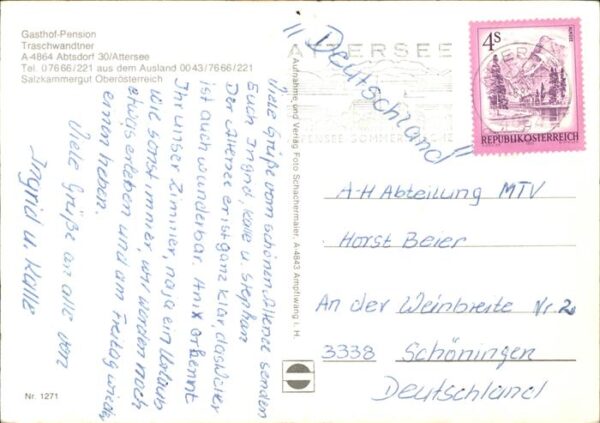 Gasthof-Pension
Traschwandtner
A-4864 Abtsdorf 30/Attersee
Tel. 07666/221 aus dem Ausland 0043/7666/221
Salzkammergut Oberösterreich
Viele Grüße vom schönen Attersee senden
Euch Ingrid, Kalle u Stephan
Der Attersee ist ganz klar, das Wetter
ist auch wunderbar.
Ihr unser Zimmer, naja ein Urlaub
wie sonst immer, wir werden noch
etwas erleben und am Freitag wieder
einen heben.
Viele Grüße an alle von
Ingrid u. Kalle
Nr. 1271
Aufnahme und Verlag Foto Schachermaier, A-4843 Ampflwang i. H.
ATTERSEE
"Deutschland"
4 S
REPUBLIK ÖSTERREICH
A-H Abteilung MTV
Horst Beier
An der Weinbreite Nr. 2
3338 Schöningen
Deutschland